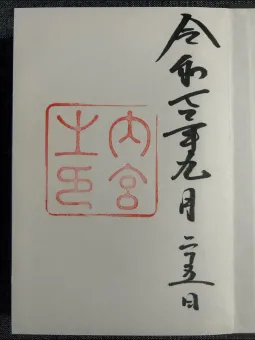 令和六年九月二十五日
内宮之印